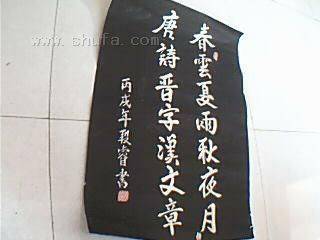 春雲夏雨秋夜月
唐詩晋字漢文章
丙戌年段睿書
www.shufa.com